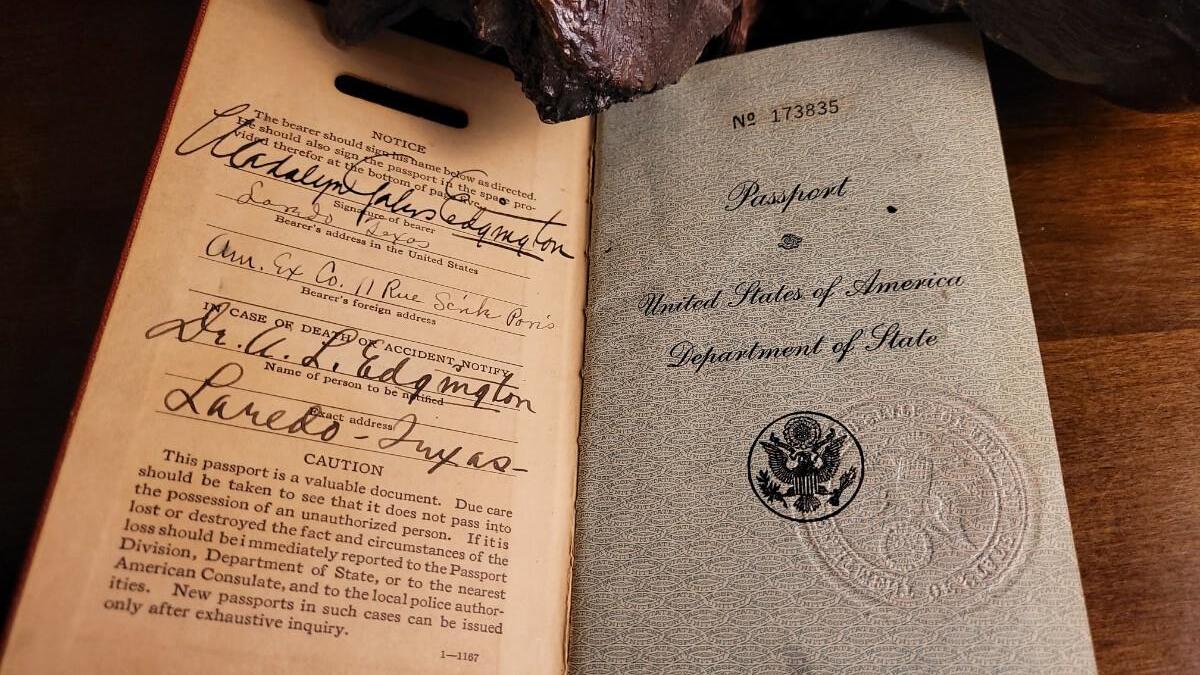 NOTICE
The bearer should sign his name below as directed.
He should also sign the passport in the space pro-
vided therefor at the bottom of page five.
Madalyn Johns Edgington
Signature of bearer
Laredo Texas
Bearer's address in the United States
Am. Ex Co. 11 Rue Scribe Paris
Bearer's foreign address
IN CASE OF DEATH OR ACCIDENT, NOTIFY
Dr. A. L. Edgington
Name of person to be notified
Laredo - Texas -
Exact address
CAUTION
This passport is a valuable document. Due care
should be taken to see that it does not pass into
the possession of an unauthorized person. If it is
lost or destroyed the fact and circumstances of the
loss should be immediately reported to the Passport
Division, Department of State, or to the nearest
American Consulate, and to the local police author-
ities. New passports in such cases can be issued
only after exhaustive inquiry.
1—1167
Nº 173835
Passport
United States of America
Department of State